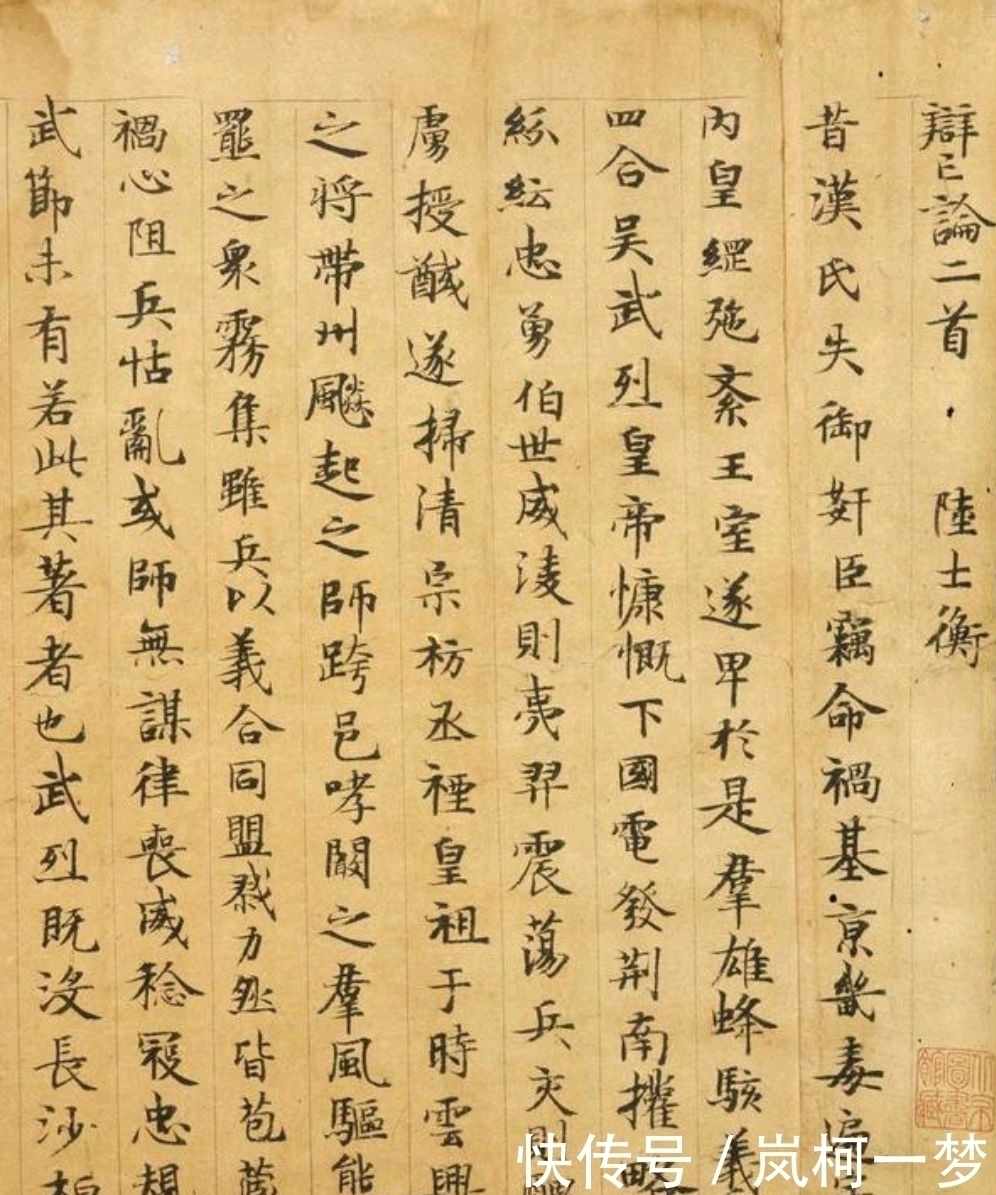 辯亡論二首 陸士衡
昔漢氏失御姧臣竊命禍基京畿毒遍
内皇綱弛紊王室遂卑於是羣雄蜂駭義
四合吴武烈皇帝慷慨下國電發荆南權略
紛紜忠勇伯世威淩則夷羿震蕩兵交則醜
虜授馘遂掃清宗祊烝禋皇祖于時雲興
之將帶州飈起之師跨邑哮闞之羣風驅熊
羆之衆霧集雖兵以義合同盟勠力然皆苞藏
禍心阻兵怙亂或師無謀律喪威稔寇忠規
武節未有若此其著者也武烈既没長沙桓
快传号/岚柯一梦